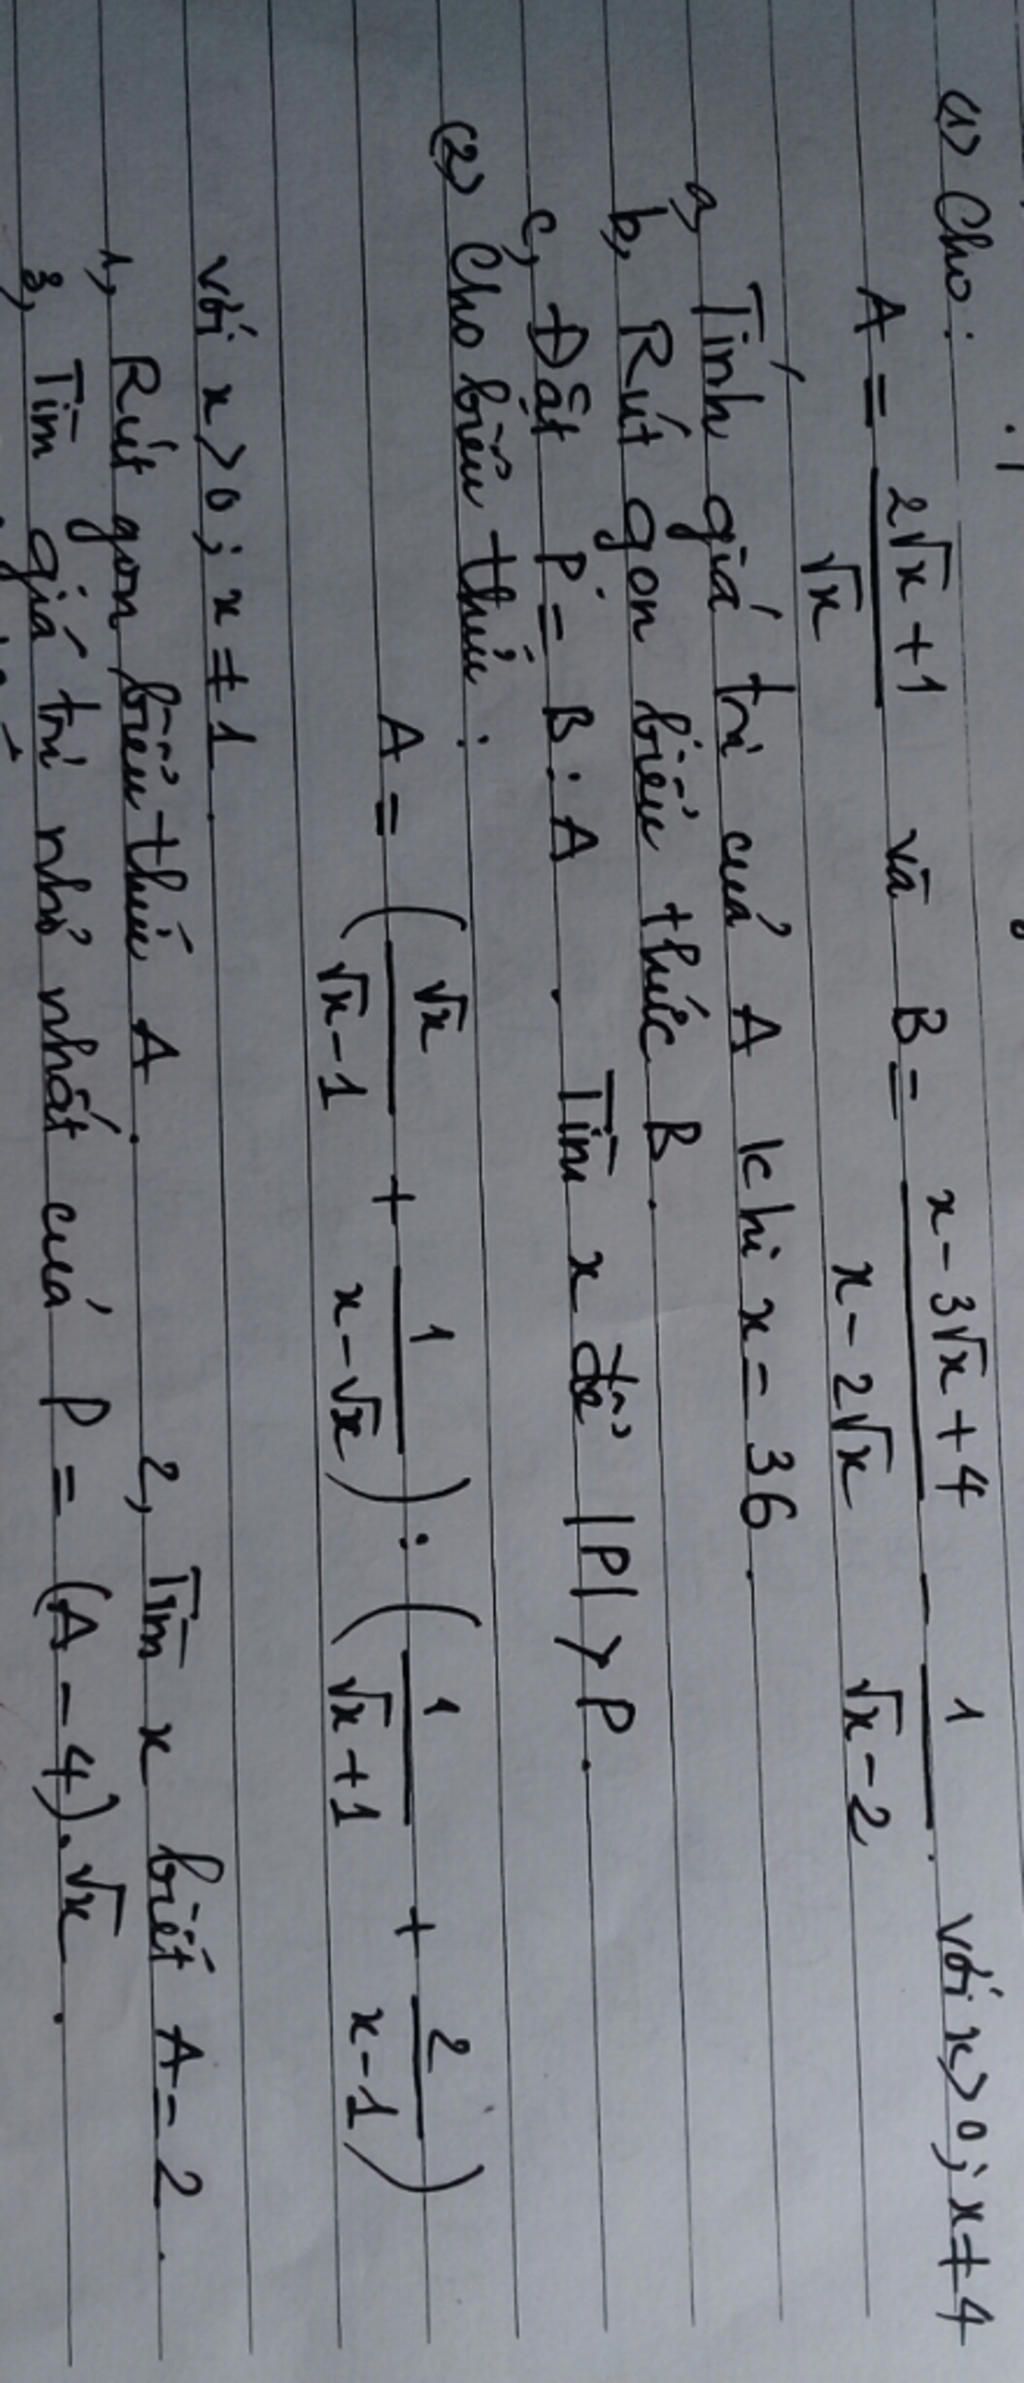 (1) Cho:
A = (2√x + 1)/√x và B = (x - 3√x + 4)/(x - 2√x) - 1/(√x - 2). với x > 0; x ≠ 4
a, Tính giá trị của A khi x = 36.
b, Rút gọn biểu thức B.
c, Đặt P = B : A. Tìm x để |P| > P.
(2) Cho biểu thức:
A = (√x/(√x - 1) + 1/(x - √x)) : (1/(√x + 1) + 2/(x - 1))
với x > 0; x ≠ 1.
1, Rút gọn biểu thức A. 2, Tìm x biết A = 2.
3, Tìm giá trị nhỏ nhất của P = (A - 4).√x.